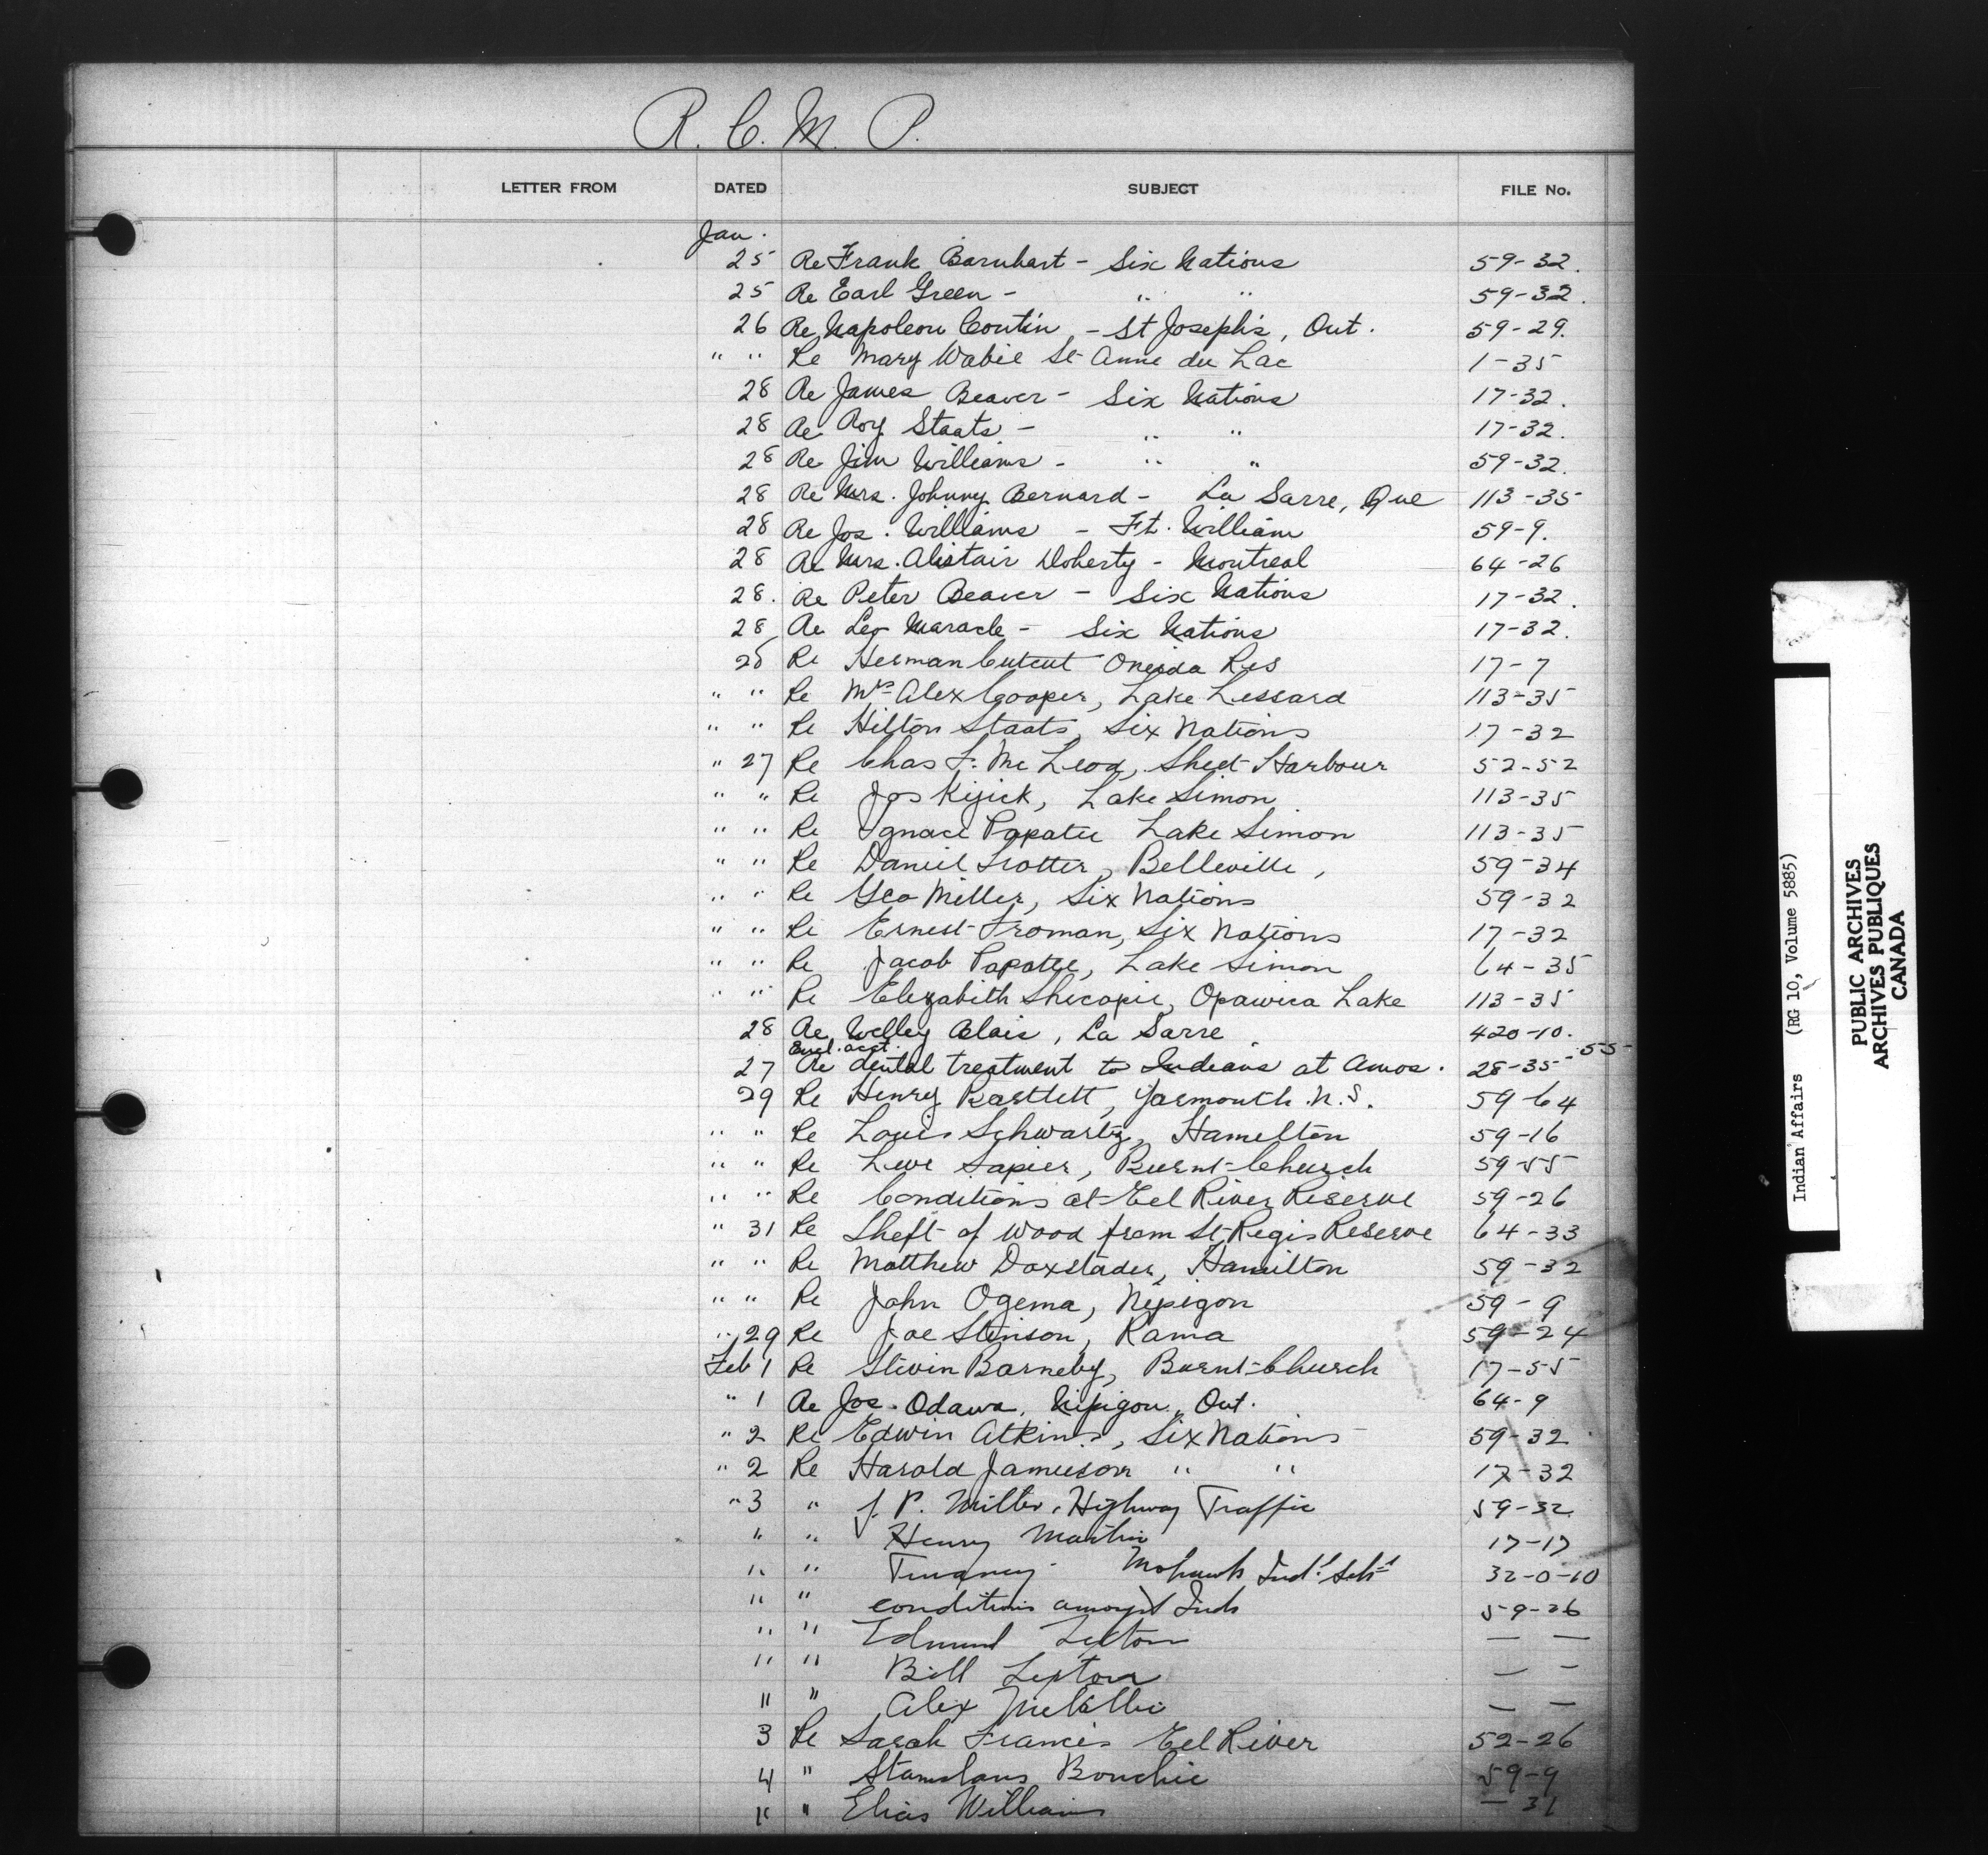 R. C. M. P.
LETTER FROM DATED SUBJECT FILE No.
Jan.
25 Re Frank Barnhart - Six Nations 59-32.
25 Re Earl Green - " " 59-32.
26 Re Napoleon Contin, - St Joseph's, Ont. 59-29.
" " Re Mary Wabie St Anne du Lac 1-35
28 Re James Beaver - Six Nations 17-32.
28 Re Roy Staats - " " 17-32.
28 Re Jim Williams - " " 59-32.
28 Re Mrs. Johnny Bernard - La Sarre, Que 113-35
28 Re Jos. Williams - Ft. William 59-9.
28 Re Mrs. Alistair Doherty - Montreal 64-26
28. Re Peter Beaver - Six Nations 17-32.
28 Re Leo Maracle - Six Nations 17-32.
28 Re Herman Cutcut Oneida Res 17-7
" " Re Mrs Alex Cooper, Lake Lessard 113-35
" " Re Hilton Staats, Six Nations 17-32
" 27 Re Chas F. Mc Leod, Sheet Harbour 52-52
" " Re Jos Kijick, Lake Simon 113-35
" " Re Ignace Papatie Lake Simon 113-35
" " Re Daniel Trotter, Belleville, 59-34
" " Re Geo Miller, Six Nations 59-32
" " Re Ernest Froman, Six Nations 17-32
" " Re Jacob Papatie, Lake Simon 64-35
" " Re Elizabeth Shecapie, Opawica Lake 113-35
28 Re Welley Blais, La Sarre 420-10.
Encl. acct.
27 Re dental treatment to Indians at Amos. 28-35-55-
29 Re Henry Bartlett, Yarmouth N.S. 59-64
" " Re Louis Schwartz, Hamilton 59-16
" " Re Levi Sapier, Burnt-Church 59-55
" " Re Conditions at Eel River Reserve 59-26
" 31 Re Theft of wood from St Regis Reserve 64-33
" " Re Matthew Doxstader, Hamilton 59-32
" " Re John Ogema, Nipigon 59-9
" 29 Re Joe Stinson, Rama 59-24
Feb 1 Re Steven Barneby, Burnt-Church 17-55
" 1 Re Jos. Odawa, Nipigon, Ont. 64-9
" 2 Re Edwin Atkins, Six Nations 59-32
" 2 Re Harold Jamieson " " 17-32
" 3 " J. P. Miller, Highway Traffic 59-32
" " Henry Martin 17-17
" " Truancy - Mohawk Ind'l Sch'l 32-0-10
" " conditions amongst Inds 59-26
" " Edmund — —
" " Bill — —
" " Alex — —
3 Re Sarah Francis Eel River 52-26
4 " Stanislaus Bouchie 59-9
" " Elias Williams — 31
Indian Affairs (RG 10, Volume 5885)
PUBLIC ARCHIVES
ARCHIVES PUBLIQUES
CANADA